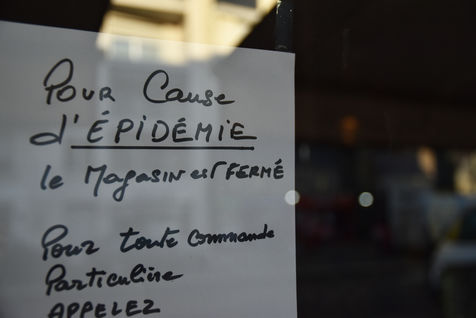 Pour Cause
d'ÉPIDÉMIE
le Magasin est FERMÉ
Pour toute commande
Particulière
APPELEZ